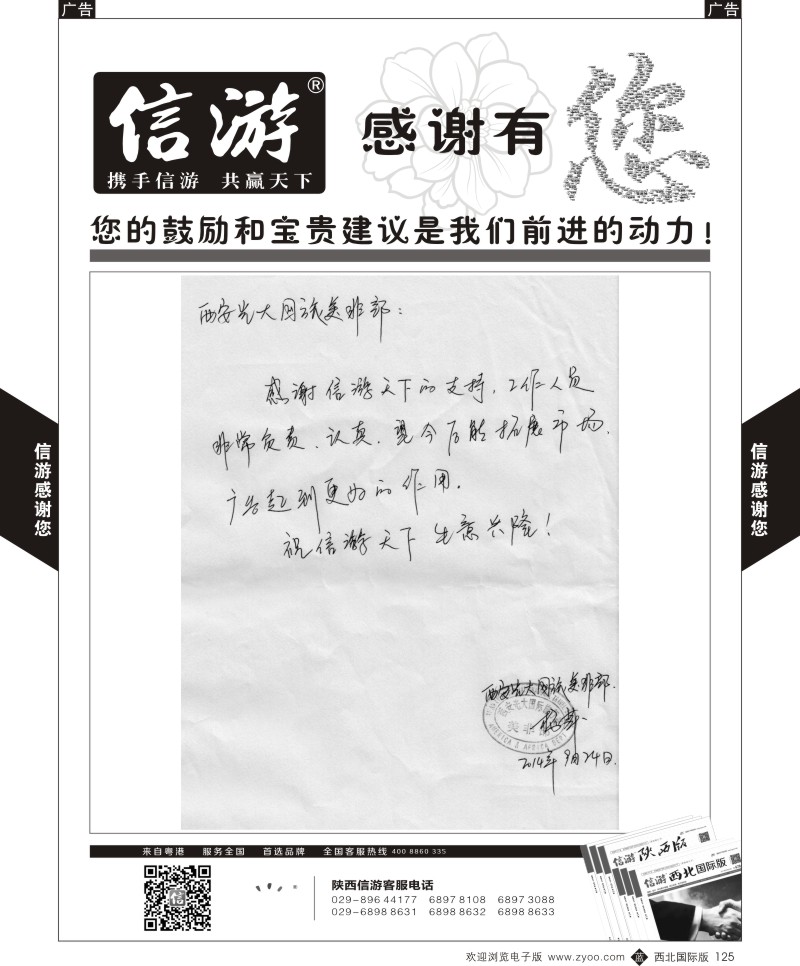 广告
广告
信游®
携手信游 共赢天下
感谢有
您
您的鼓励和宝贵建议是我们前进的动力!
西安光大国旅美非部:
感谢信游天下的支持,工作人员
非常负责、认真,望今后能拓展市场,
广告起到更好的作用。
祝信游天下生意兴隆!
西安光大国旅美非部
2014年9月24日
信游感谢您
信游感谢您
来自粤港 服务全国 首选品牌 全国客服热线 400 8860 335
信
陕西信游客服电话
029-896 44177 6897 8108 6897 3088
029-6898 8631 6898 8632 6898 8633
信游 陕西版
信游 西北国际版
欢迎浏览电子版 www.zyoo.com 蓝 西北国际版 125